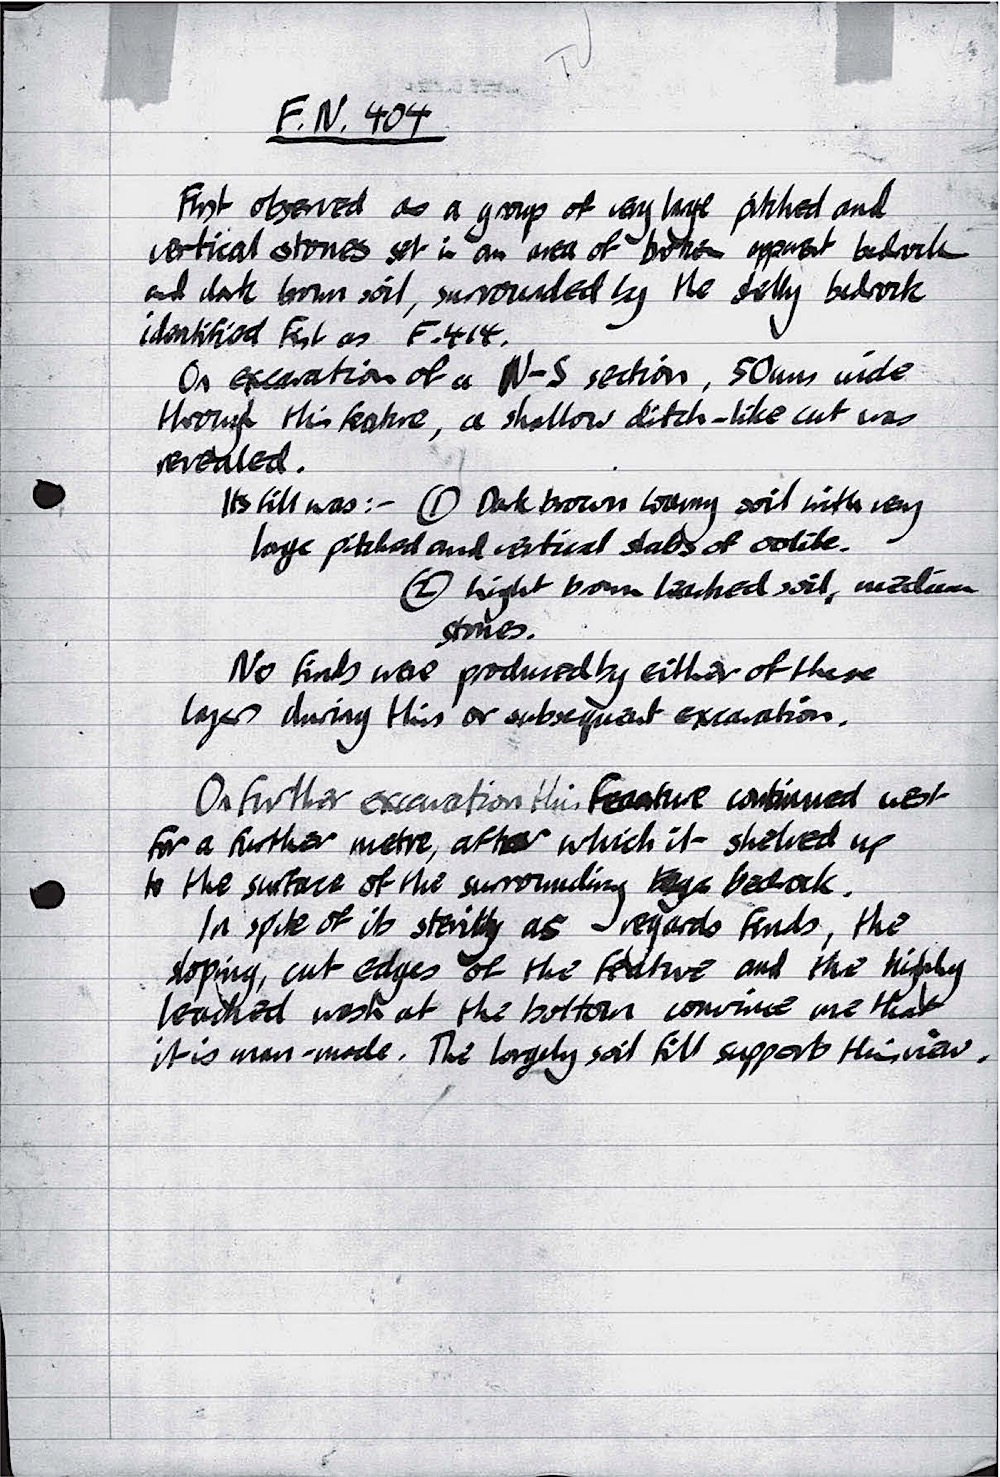 F.N. 404
First observed as a group of very large pitched and
vertical stones set in an area of broken apparent bedrock
and dark brown soil, surrounded by the shelly bedrock
identified first as F.414.
On excavation of a N-S section, 50cms wide
through this feature, a shallow ditch-like cut was
revealed.
Its fill was:- ① Dark brown loamy soil with very
large pitched and vertical slabs of oolite.
② Light brown leached soil, medium
stones.
No finds were produced by either of these
layers during this or subsequent excavation.
On further excavation this feature continued west
for a further metre, after which it shelved up
to the surface of the surrounding bedrock.
In spite of its sterility as regards finds, the
sloping, cut edges of the feature and the highly
leached wash at the bottom convince me that
it is man-made. The largely soil fill supports this view.